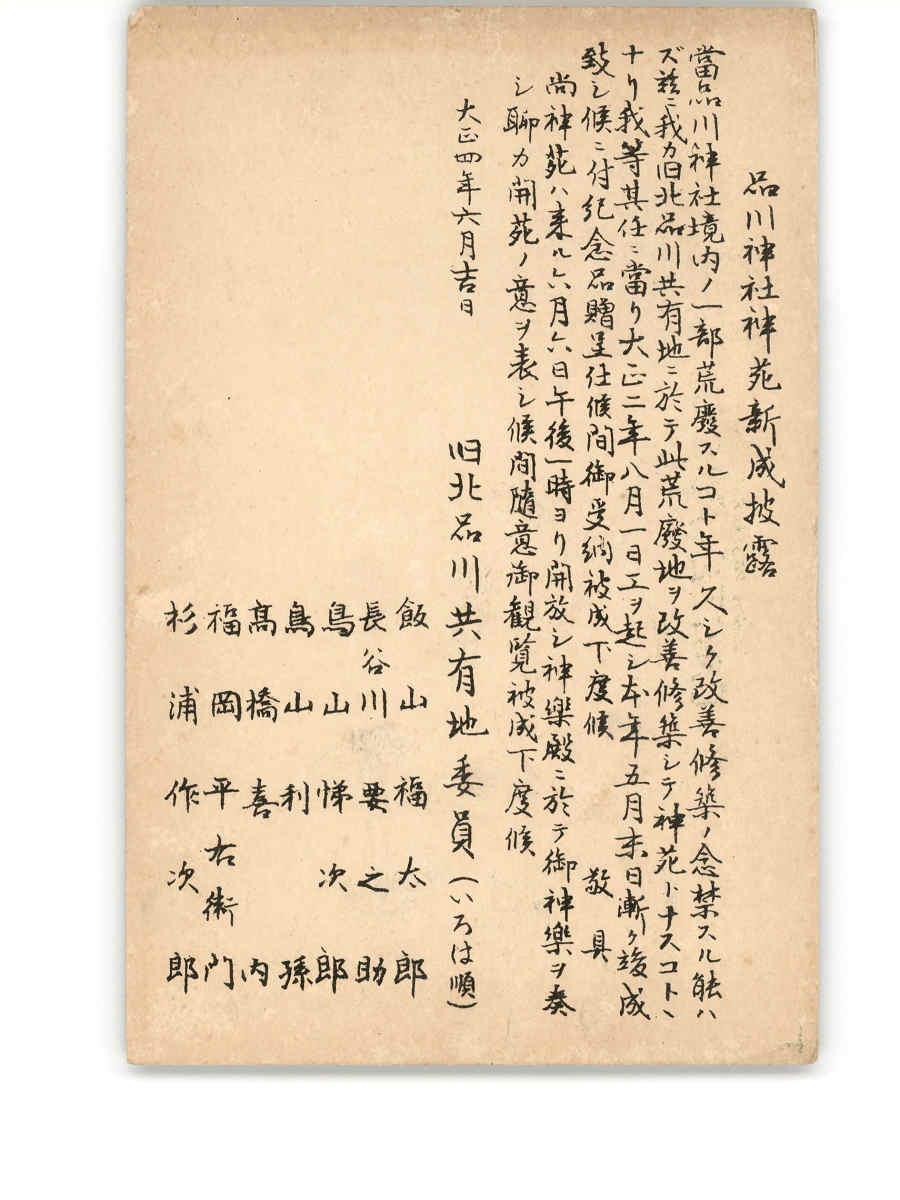 品川神社神苑新成披露
當品川神社境内ノ一部荒廢スルコト年久シク改善修築ノ念禁スル能ハ
ズ茲ニ我カ旧北品川共有地ニ於テ此荒廢地ヲ改善修築シテ神苑トナスコトヽ
ナリ我等其任ニ當リ大正二年八月一日工ヲ起シ本年五月末日漸ク竣成
致シ候ニ付紀念品贈呈仕候間御受納被成下度候 敬具
尚神苑ハ来ル六月六日午後一時ヨリ開放シ神樂殿ニ於テ御神樂ヲ奏
シ聊カ開苑ノ意ヲ表シ候間隨意御觀覧被成下度候
大正四年六月吉日
旧北品川共有地委員（いろは順）
飯山福太郎
長谷川要之助
鳥山悌次郎
鳥山利孫
髙橋喜内
福岡平右衛門
杉浦作次郎